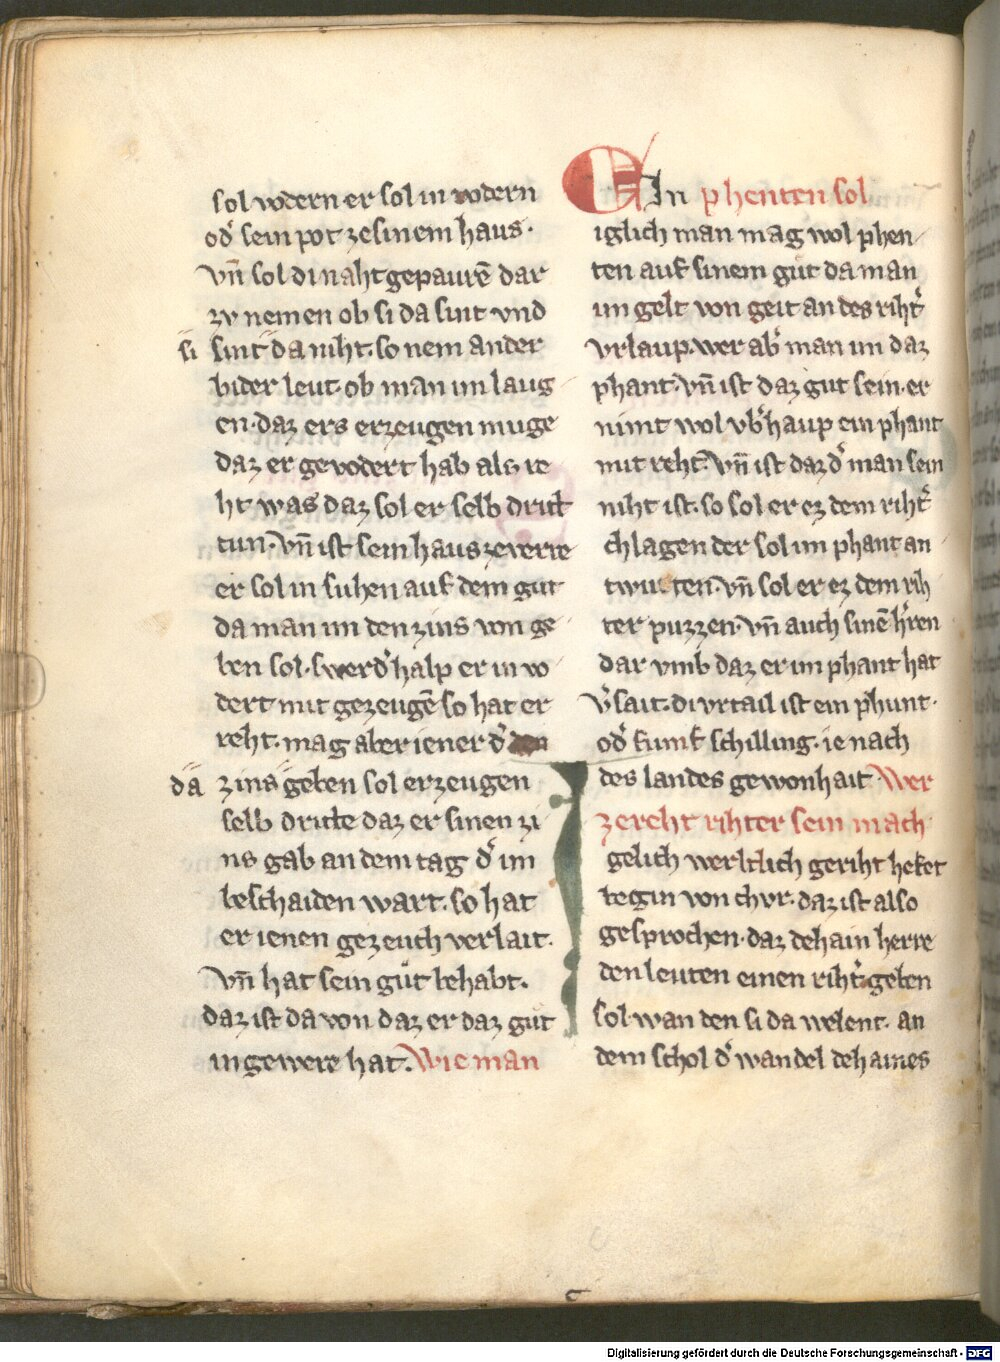 sol vodern er sol in vodern
od͛ sein pot ze sinem haus·
vn̄ sol di naht gepaurē dar
zv nemen ob si da sint vnd
si sint da niht. so nem ander
bider leut. ob man im laug
en. daz ers erzeugen muge
daz er gevodert hab als re
ht was daz sol er selb dritt
tun. vn̄ ist sein haus ze verre
er sol in suhen auf dem gut
da man im den zins von ge
ben sol. swerd͛ halp er in vo
dert mit gezeugē so hat er
reht. mag aber iener d͛ den
da zins geben sol erzeugen
selb dritte daz er sinen zi
ns gab an dem tag d͛ im
beschaiden wart. so hat
er ienen gezeuch verlait.
vn̄ hat sein gůt behabt.
daz ist da von daz er daz gůt
in gewere hat. Wie man
EIn phenten sol
iglich man mag wol phen
ten auf sinem gůt da man
im gelt von geit an des riht͛
vrlaup. wer ab͛ man im daz
phant. vn̄ ist daz gut sein. er
nimt wol vb͛haup ein phant
mit reht. vn̄ ist daz d͛ man sein
niht ist. so sol er ez dem riht͛
chlagen der sol im phant an
twurten. vn̄ sol er ez dem rih
ter puzzen. vn̄ auch sinē h͛ren
dar vmb daz er im phant hat
v͛sait. di vrtail ist ein phunt.
od͛ fumf schilling. ie nach
des landes gewonhait. Wer
ze reht rihter sein mach
gelich werltlich geriht hebet
begin von chvr. daz ist also
gesprochen. daz dehain herre
den leuten einen riht͛ geben
sol wan den si da welent. an
dem schol d͛ wandel dehaines
Digitalisierung gefördert durch die Deutsche Forschungsgemeinschaft - DFG